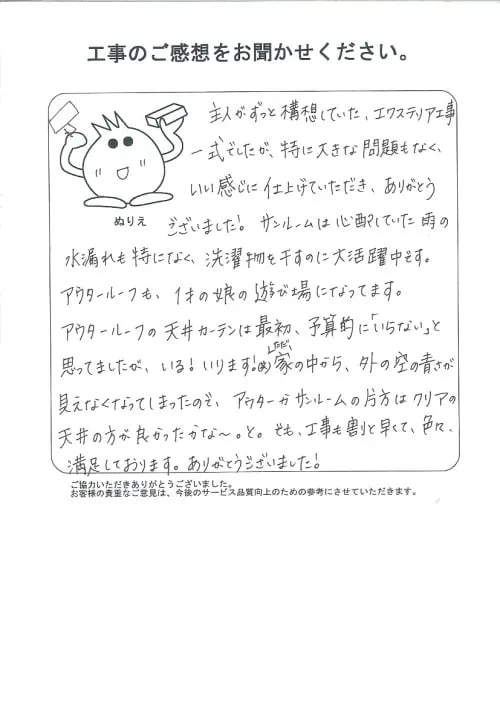 工事のご感想をお聞かせください。
主人がずっと構想していた、エクステリア工事
一式でしたが、特に大きな問題もなく、
いい感じに仕上げていただき、ありがとう
ぬりえ
ございました！サンルームは心配していた雨の
水漏れも特になく、洗濯物を干すのに大活躍中です。
アウタールーフも、1才の娘の遊び場になってます。
アウタールーフの天井カーテンは最初、予算的に「いらない」と
思ってましたが、いる！いります！(笑)ただ、家の中から、外の空の青さが
見えなくなってしまったので、アウターかサンルームの片方はクリアの
天井の方が良かったかな～。と。でも、工事も割と早くて、色々、
満足しております。ありがとうございました！
ご協力いただきありがとうございました。
お客様の貴重なご意見は、今後のサービス品質向上のための参考にさせていただきます。